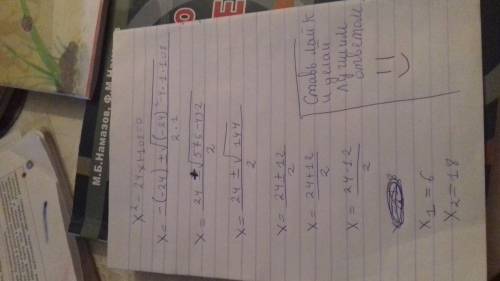 М.Б.Намазов, Ф.М.На
x²-24x+108=0
x = -(-24) ± √(-24)²-4·1·108
2·1
x = 24 ± √576-432
2
x = 24 ± √144
2
x = 24±12
2
x = 24+12
2
x = 24-12
2
x₁=6
x₂=18
Ставь лайк
и делай
лучшим
ответом
=)